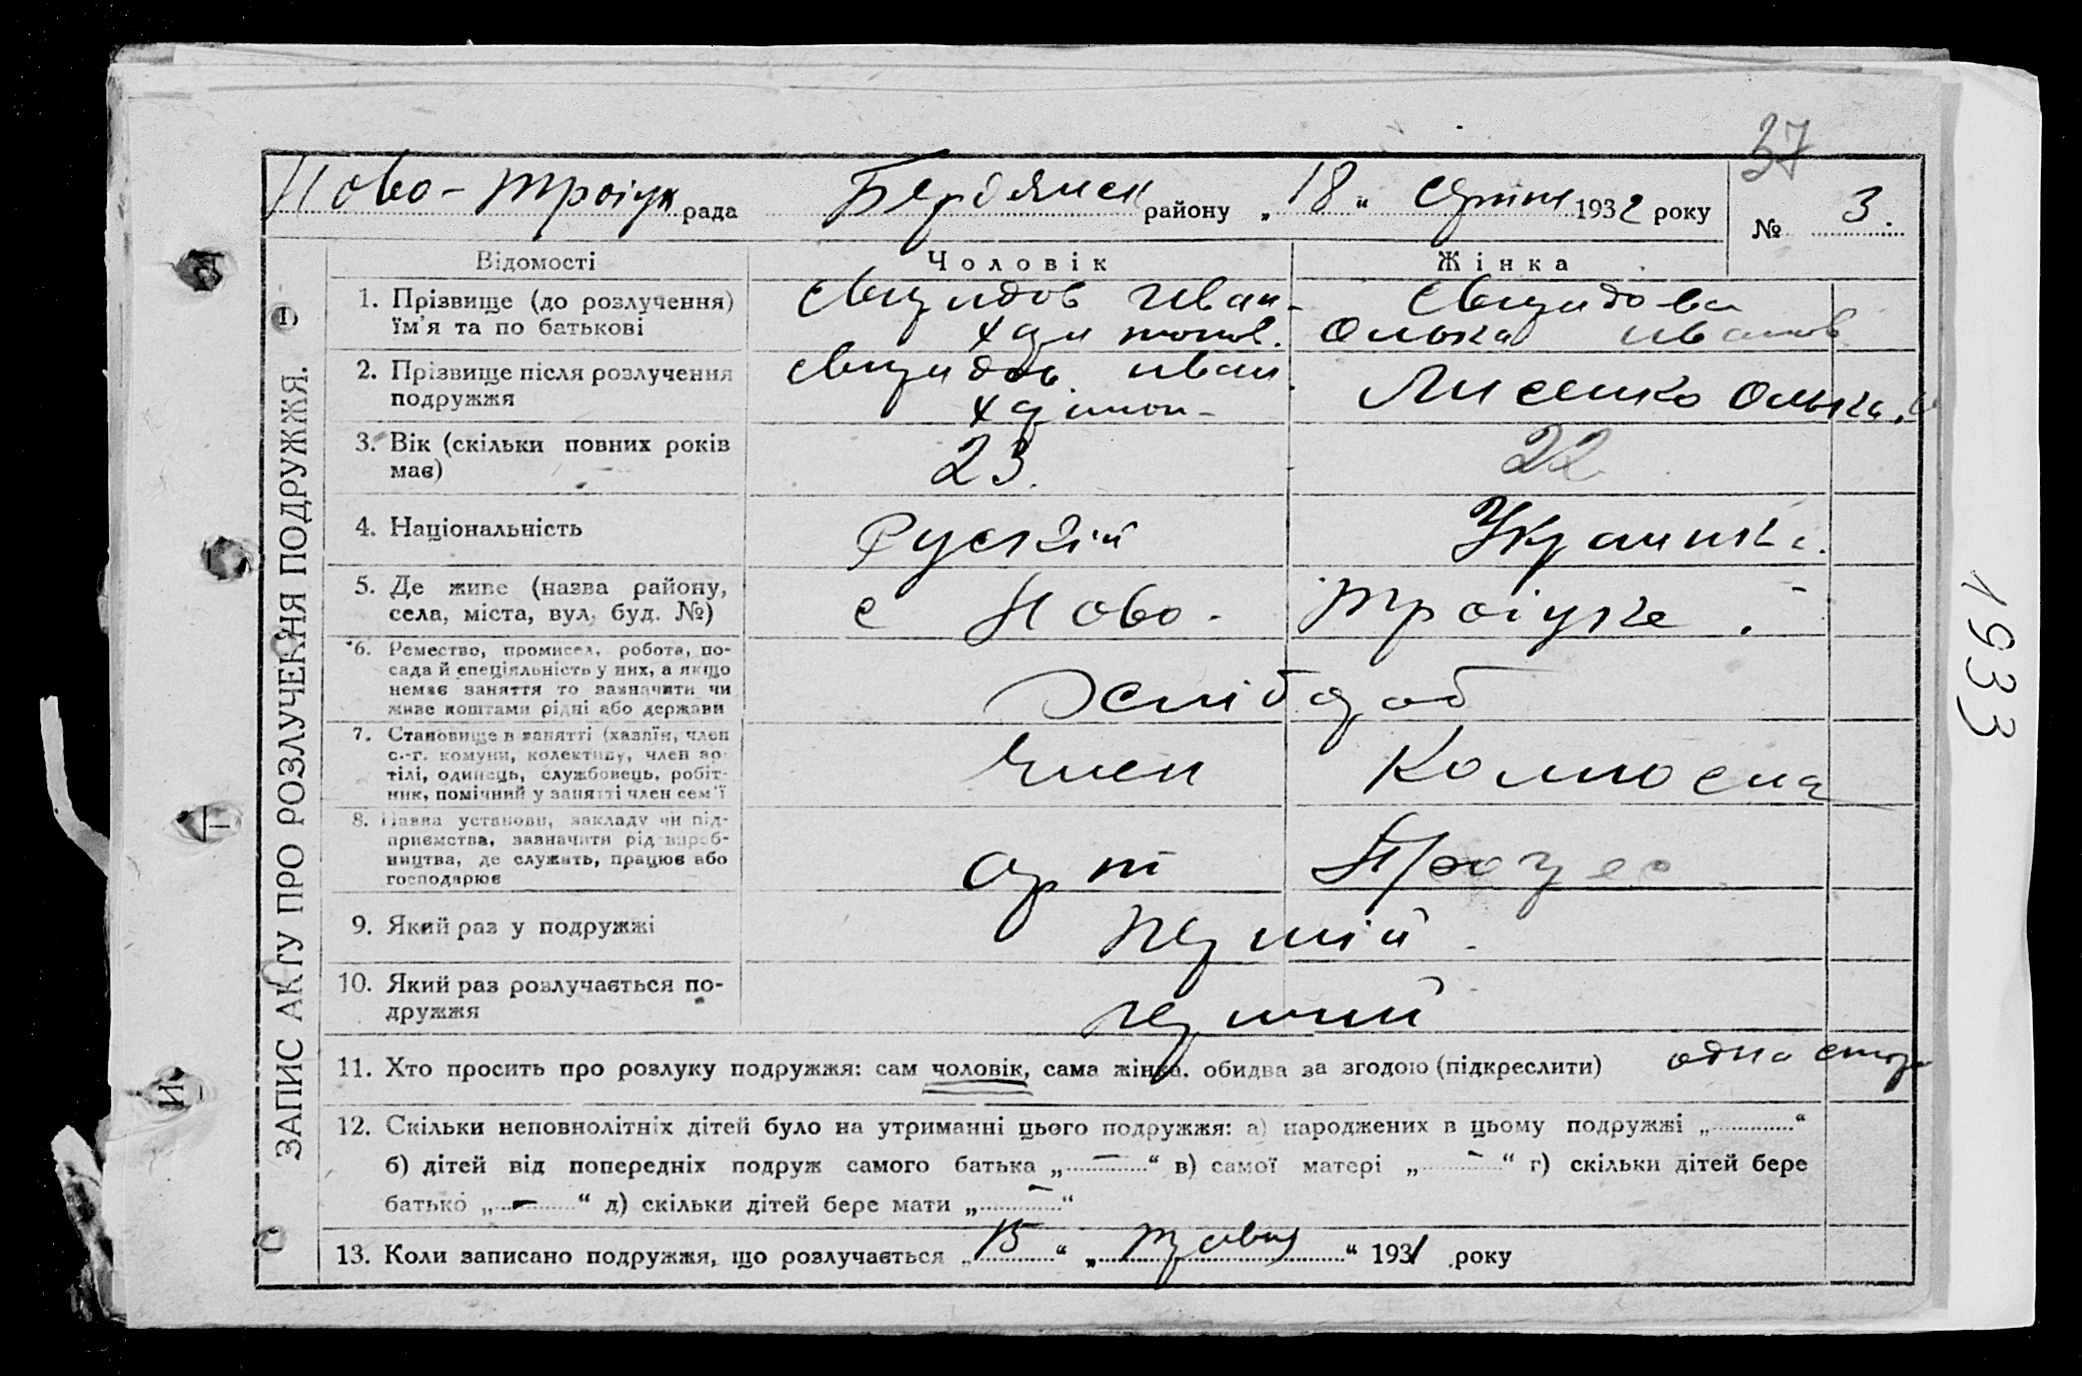 37
Ново-Троіцк рада Бердянськ району „ 18 “ серпня 1932 року
№ 3.
Відомості Чоловік Жінка
1. Прізвище (до розлучення) Іван Ольга Іванов
їм'я та по батькові
2. Прізвище після розлучення Іван Лисенко Ольга
подружжя
3. Вік (скільки повних років 23 22
має)
4. Національність Рускій Українка
5. Де живе (назва району, с Ново- Троіцке.
села, міста, вул. буд. №)
*6. Ремество, промисел, робота, по-
сада й спеціяльність у них, а якщо
немає заняття то зазначити чи
живе коштами рідні або держави
7. Становище в занятті (хазяїн, член Член
с.-г. комуни, колективу, член ар-
тілі, одинець, службовець, робіт-
ник, помічний у занятті член сем'ї
8. Назва установи, закладу чи під- арт
приємства, зазначити рід вироб-
ництва, де служить, працює або
господарює
9. Який раз у подружжі першій
10. Який раз розлучається по- перший
дружжя
11. Хто просить про розлуку подружжя: сам чоловік, сама жінка, обидва за згодою (підкреслити) одна
12. Скільки неповнолітніх дітей було на утриманні цього подружжя: а) народжених в цьому подружжі „ “
б) дітей від попередніх подруж самого батька „ — “ в) самої матері „ - “ г) скільки дітей бере
батько „ - “ д) скільки дітей бере мати „ - “
13. Коли записано подружжя, що розлучається „ 15 “ „ травня “ 1931 року
ЗАПИС АКТУ ПРО РОЗЛУЧЕННЯ ПОДРУЖЖЯ.
1933